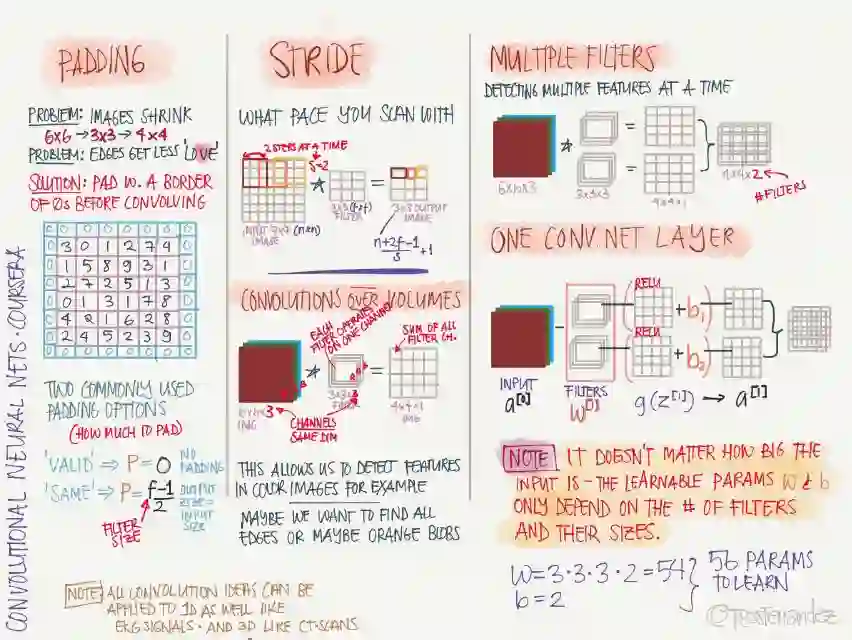 CONVOLUTIONAL NEURAL NETS · COURSERA
PADDING
PROBLEM: IMAGES SHRINK
6x6 → 3x3 → 4x4
PROBLEM: EDGES GET LESS 'LOVE'
SOLUTION: PAD W. A BORDER
OF 0s BEFORE CONVOLVING
0 0 0 0 0 0 0 0
0 3 0 1 2 7 4 0
0 1 5 8 9 3 1 0
0 2 7 2 5 1 3 0
0 0 1 3 1 7 8 0
0 4 2 1 6 2 8 0
0 2 4 5 2 3 9 0
0 0 0 0 0 0 0 0
TWO COMMONLY USED
PADDING OPTIONS
(HOW MUCH TO PAD)
'VALID' ⇒ P = 0 NO PADDING
'SAME' ⇒ P = f-1/2 OUTPUT SIZE = INPUT SIZE
FILTER SIZE
NOTE: ALL CONVOLUTION IDEAS CAN BE
APPLIED TO 1D AS WELL LIKE
EKG SIGNALS · AND 3D LIKE CT-SCANS
STRIDE
WHAT PACE YOU SCAN WITH
2 STEPS AT A TIME
S=2
* =
INPUT 7x7 (n×n)
IMAGE
3x3 (f×f)
FILTER
3x3 OUTPUT
IMAGE
n+2f-1/s +1
CONVOLUTIONS OVER VOLUMES
EACH
FILTER OPERATES
ON ONE CHANNEL
SUM OF ALL
FILTER CH.
* =
6x6x3
IMG
3x3x3
FILTER
4x4x1
IMG
CHANNELS
SAME DIM
THIS ALLOWS US TO DETECT FEATURES
IN COLOR IMAGES FOR EXAMPLE
MAYBE WE WANT TO FIND ALL
EDGES OR MAYBE ORANGE BLOBS
MULTIPLE FILTERS
DETECTING MULTIPLE FEATURES AT A TIME
* = =
6x6x3
3x3x3
4x4x1
4x4x2
#FILTERS
ONE CONV. NET LAYER
RELU
( + b₁)
RELU
( + b₂)
INPUT
a[0]
FILTERS
W[1]
g(z[1]) → a[1]
NOTE IT DOESN'T MATTER HOW BIG THE
INPUT IS – THE LEARNABLE PARAMS W & b
ONLY DEPEND ON THE # OF FILTERS
AND THEIR SIZES.
W=3·3·3·2=54
b=2
56 PARAMS
TO LEARN